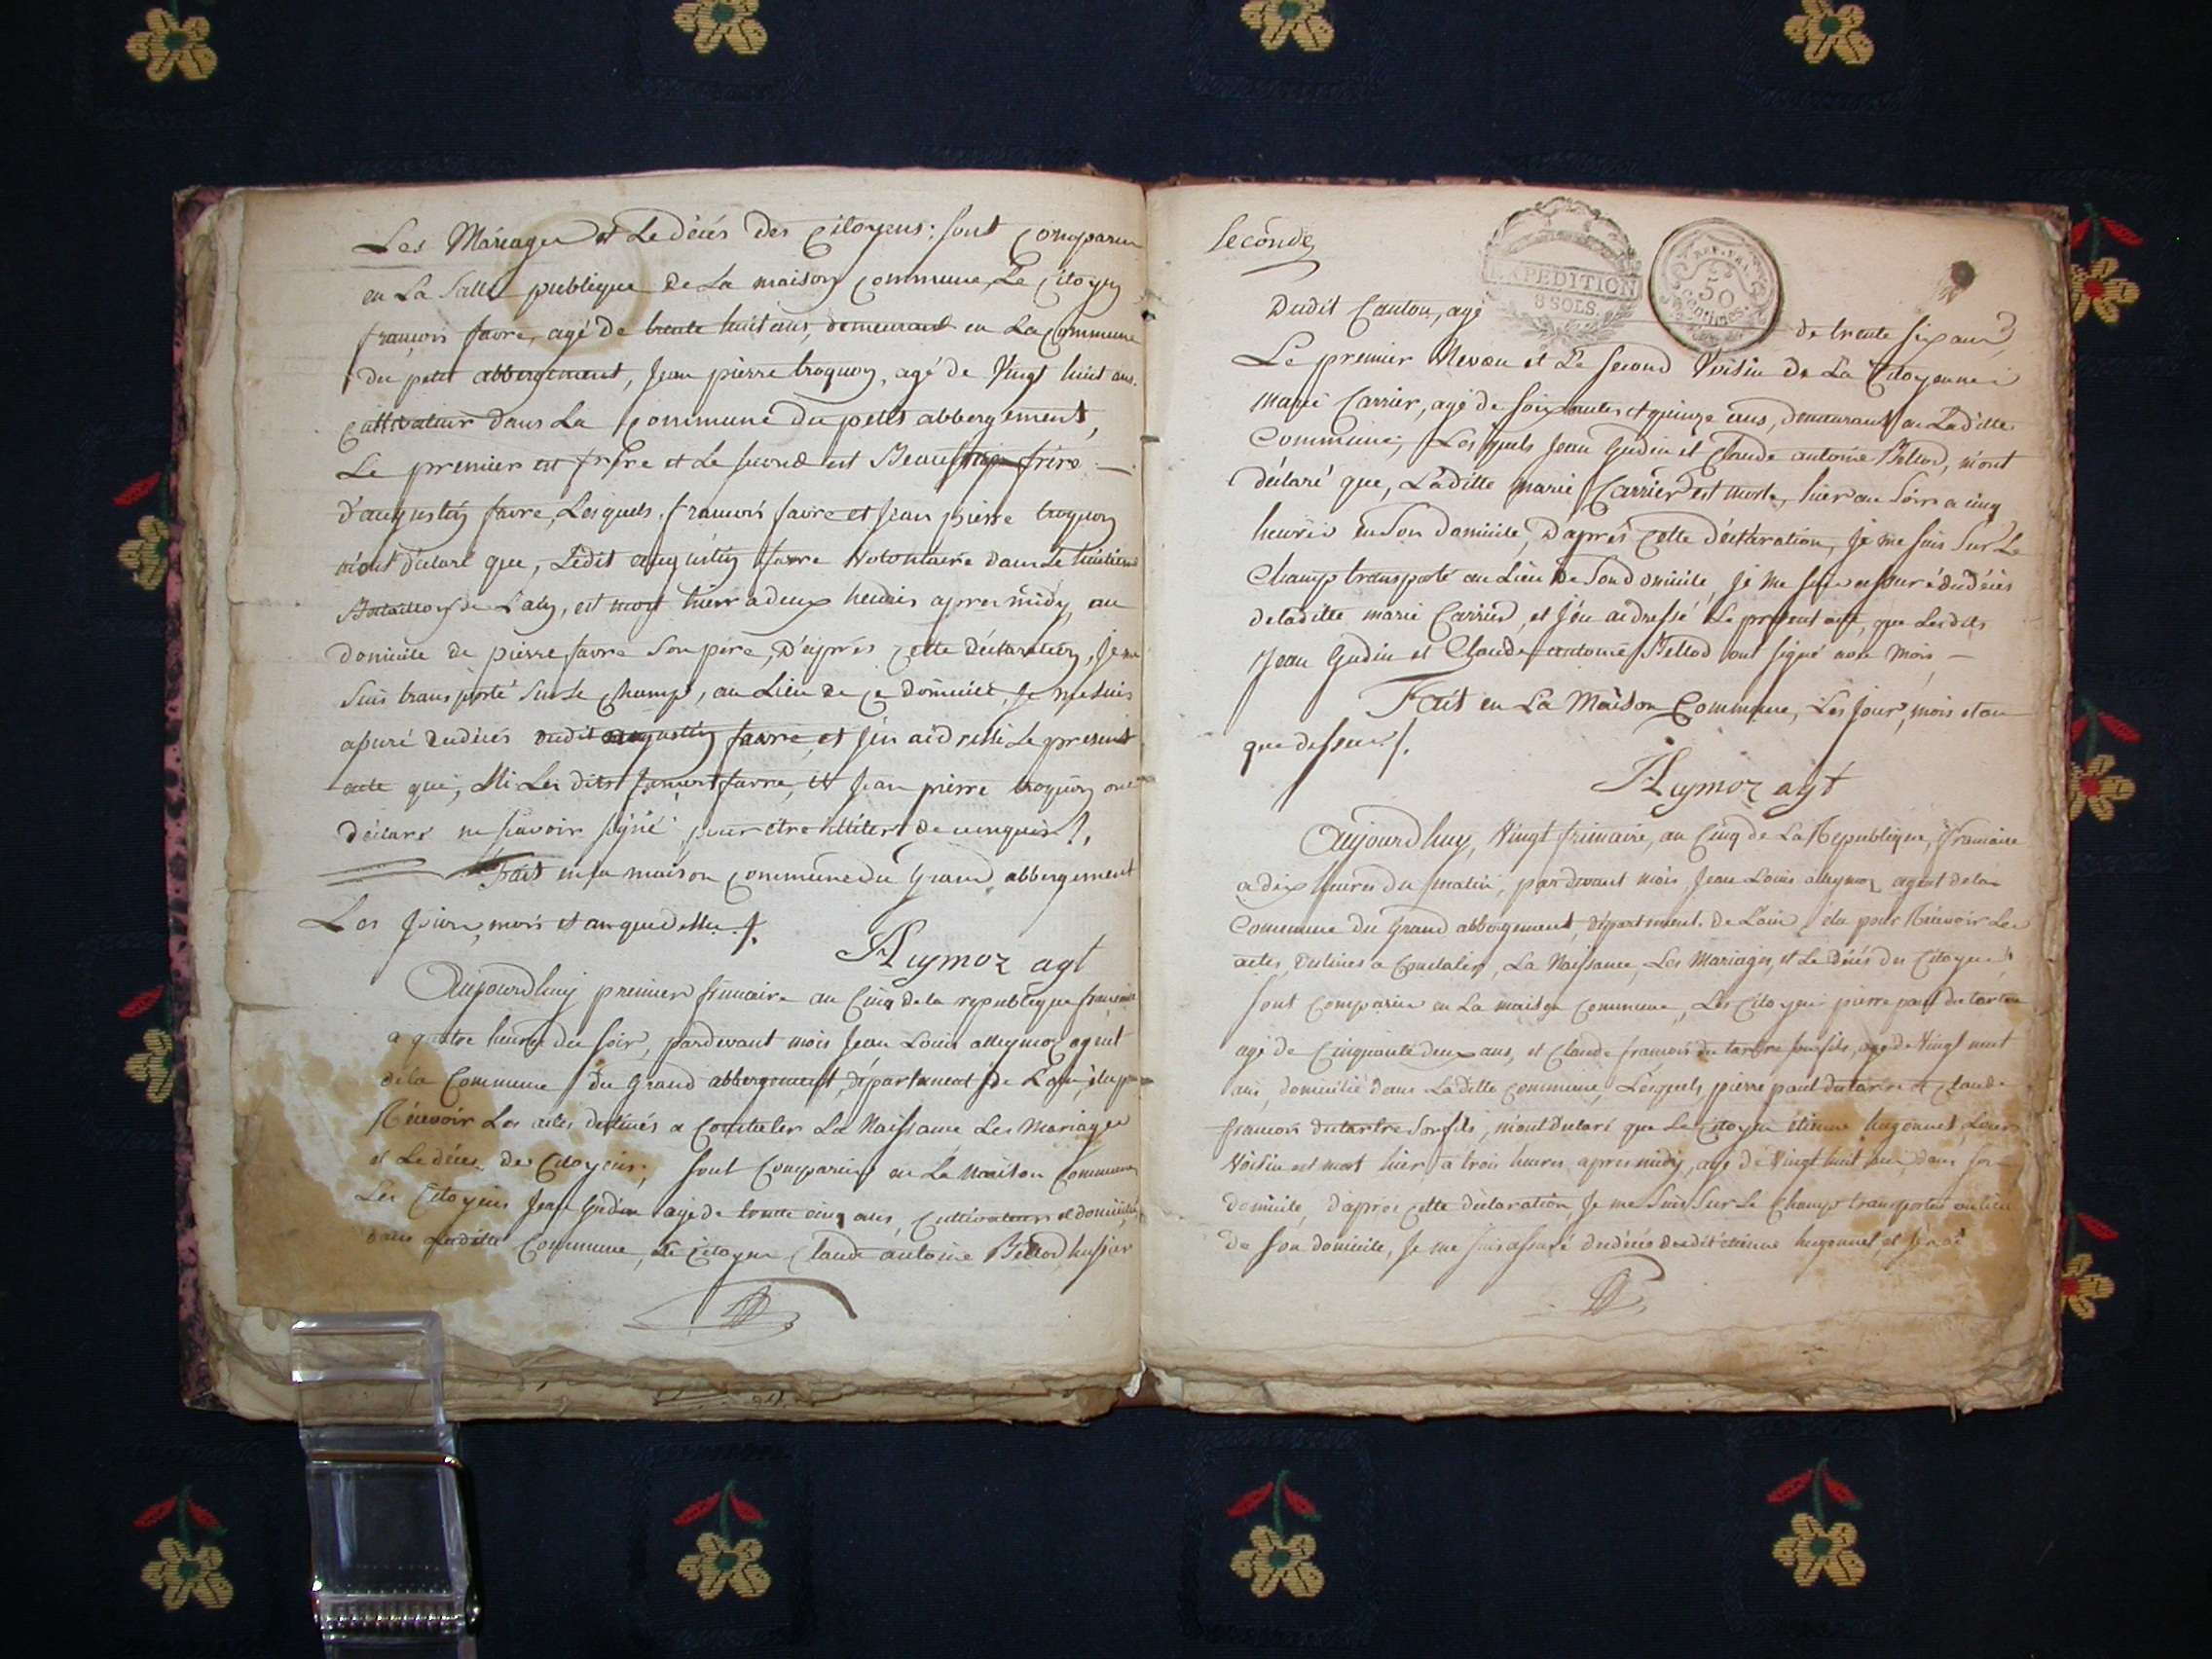 Les Mariages et Le décés des Citoyens: sont comparus
en La Salle publique de La maison commune, Le Citoyen
françois favre, agé de trente huit ans, demeurant en La Commune
du petit abbergement, Jean pierre troquon, agé de Vingt huit ans,
Cultivateur dans La Commune du petit abbergement,
Le premier est frere et Le second est Beau frère
d'augustin favre, Lesquels françois favre et Jean pierre troquon
m'ont déclaré que, Ledit augustin favre Volontaire dans Le huitieme
Bataillon de L'ain, est mort hier a deux heures apres midy, au
domicile de pierre favre Son père, D'après cette déclaration, Je me
Suis transporté Sur Le Champ, au Lieu de ce domicile, Je me Suis
assuré du décés dudit augustin favre, et j'en ai dressé Le present
acte que, Les dits françois favre, et Jean pierre troquon ont
déclaré ne scavoir signé pour être de ce enquis /.
Fait en La maison commune du Grand abbergement
Les Jour, mois et an que dessus /.
Aymoz agt
Aujourdhuy premier frimaire an Cinq de la republique francaise
a quatre heures du soir, pardevant mois Jean Louis alleymoz agent
de la Commune du Grand abbergement, département de L'ain, élu pour
Récevoir Les actes destinés a Constater La Naissance Les Mariages
et Le décés des Citoyens; sont Comparus en La Maison Commune
Les Citoyens Jean Gudin agé de trente cinq ans, Cultivateur et domicilié
dans Laditte Commune, Le Citoyen Claude antoine Bellod huissier
Seconde
EXPEDITION
8 SOLS.
REP. FRA.
50
Centimes
Dudit Canton, agé de trente six ans
Le premier Neveu et Le second Voisin de La Citoyenne
marie Carrier, agé de soixantes et quinze ans, demeurant en Laditte
Commune; Lesquels Jean Gudin et Claude antoine Bellod, m'ont
déclaré que, Laditte marie Carrier est morte, hier au soir a cinq
heures en Son Domicile, D'aprés cette déclaration, Je me suis sur Le
Champ transporté au Lieu de Son domicile, Je me suis assuré du décés
de laditte marie Carrier, et J'en ai dressé Le present acte, que Lesdits
Jean Gudin et Claude antoine Bellod ont signé avec Mois —
Fait en La Maison Commune, Les Jour, mois et an
que dessus /.
Aymoz agt
Aujourdhuy, Vingt frimaire, an Cinq de La Republique, francaise
a dix heures du matin, pardevant mois, Jean Louis alleymoz agent de la
Commune du Grand abbergement, département de L'ain élu pour Récevoir Les
actes, destinés a Constater, La Naissance, Les Mariages, et Le décés des Citoyens:
sont Comparus en La maison Commune, Les Citoyens pierre paul dutartre
agé de Cinquante deux ans, et Claude françois dutartre son fils, agé de Vingt neuf
ans, domicilié dans Laditte commune, Lesquels, pierre paul dutartre et Claude
françois dutartre son fils, m'ont déclaré que Le Citoyen étienne hugonnet, Leur
Voisin est mort hier à trois heures apres midy, agé de Vingt huit ans, dans son
domicile, d'après cette déclaration, Je me Suis Sur Le Champ transporté au lieu
de son domicile, Je me suis assuré du décés dudit étienne hugonnet, et j'en ai